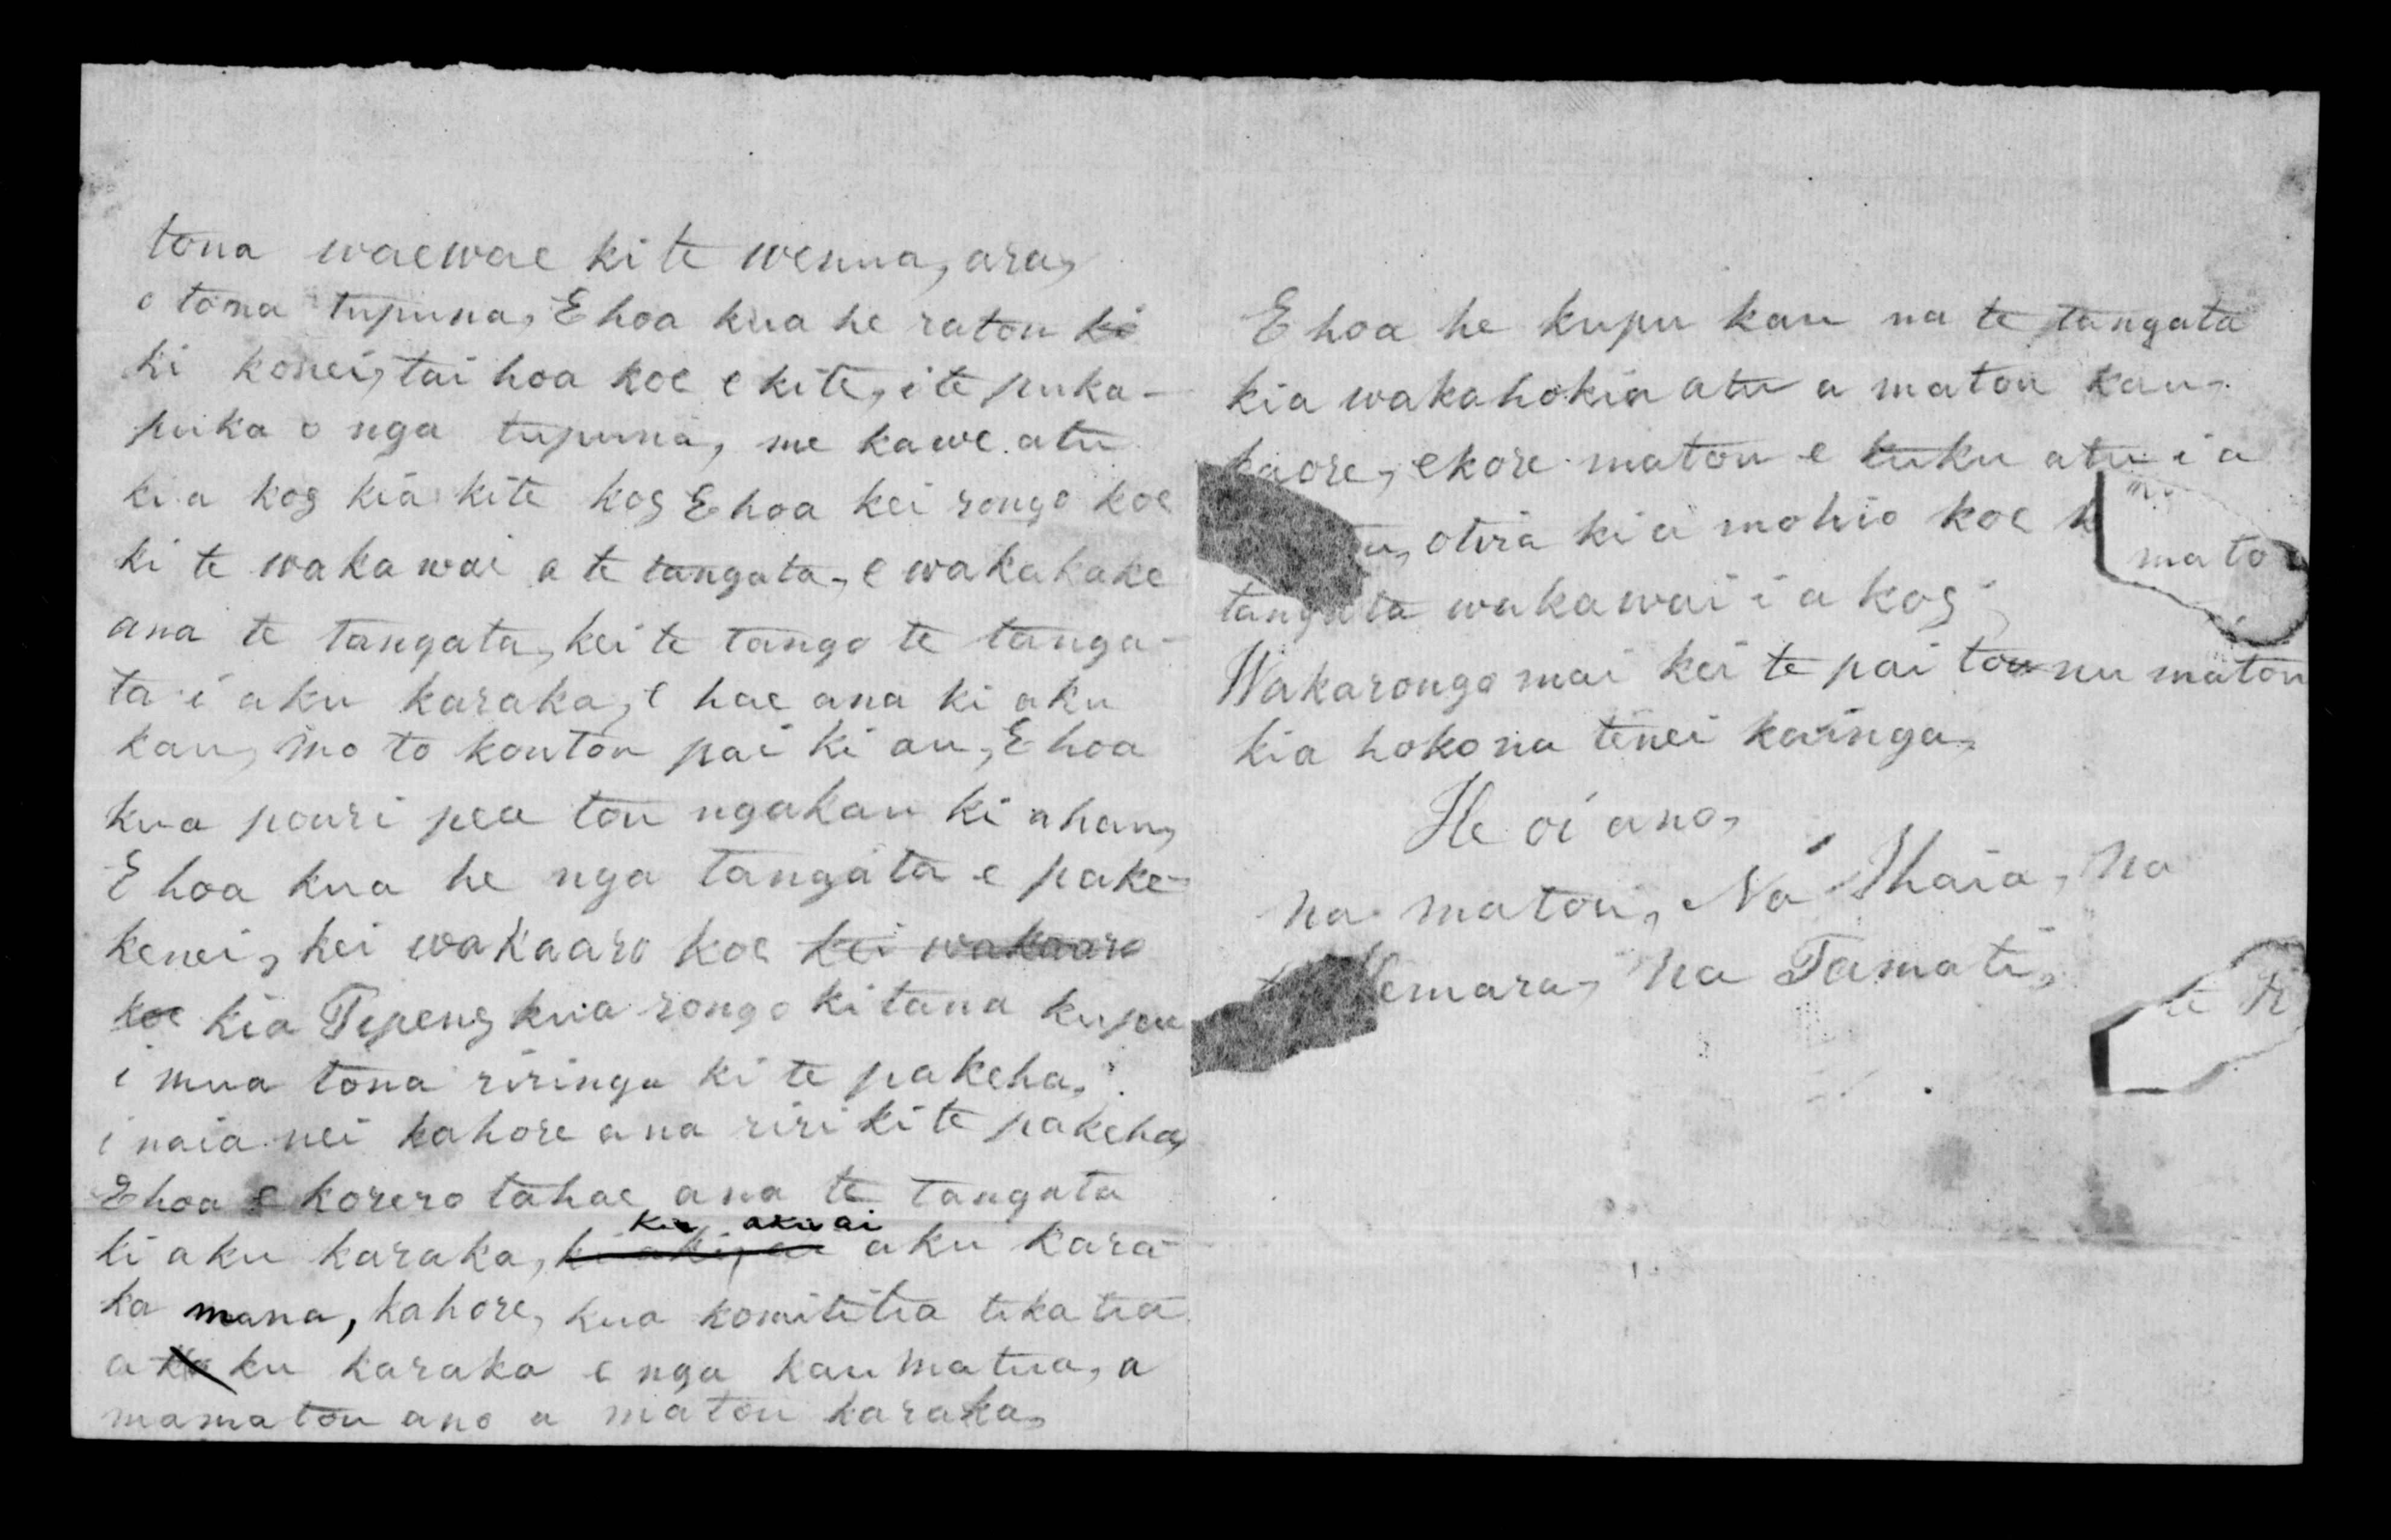 tona waewae ki te wenua, ara,
o tona tupuna, E hoa kua he ratou ki
ki konei, tai hoa koe e kite, i te puka-
puka o nga tupuna, me kawe atu
ki a koe, kia kite koe, E hoa kei rongo koe
ki te wakawai a te tangata, e wakakake
ana te tangata, kei te tango te tanga-
ta i aku karaka, e hae ana ki aku
kau, mo to koutou pai ki au, E hoa
kua pouri pea tou ngakau ki ahau,
E hoa kua he nga tangata e pake-
kenei, kei wakaaro koe kei wakaaro
koe kia Tipene, kua rongo ki tana kupu
i mua tona riringa ki te pakeha,
i naia nei kahore ana riri ki te pakeha,
E hoa e korero tahae ana te tangata
kia akuai
ki aku karaka, aku kara-
ka mana, kahore, kua komititia tikatia
a ku karaka e nga kaumatua, a
mamatou ano a matou karaka,
E hoa he kupu kau na te tangata
kia wakahokia atu a matou kau,
kaore, ekore matou e tuku atu i a
otira kia mohio koe mato
tangata wakawai i a koe,
Wakarongo mai kei te pai tonu matou
kia hokona tenei kainga,
He oi ano,
na matou, Na Ihaia, na
emara, na Tamati,
te